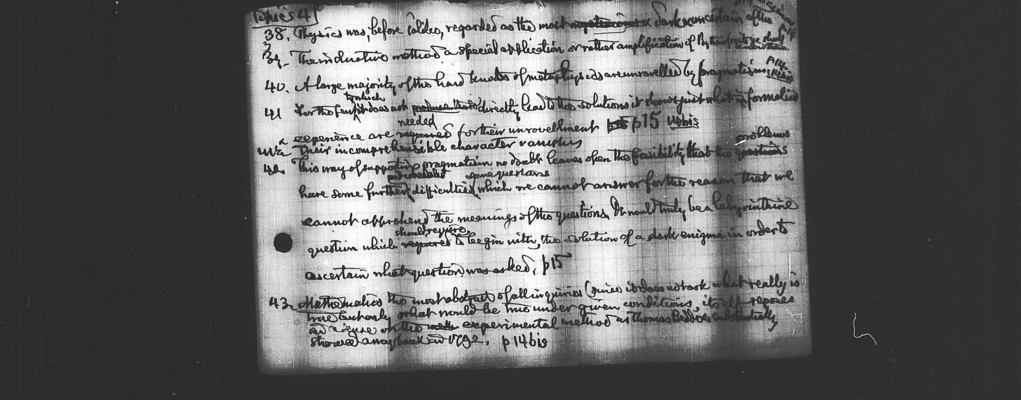 Topics 4
38. Physics was, before Galileo, regarded as the most dark & uncertain of the
39. The inductive method a special application or rather amplification of
40. A large majority of the hard knots of metaphysics are unravelled by pragmatism;
41 For the few which it does not directly lead to the solution it shows just what
experience are needed for their unravelment p15
Their incomprehensible character vanishes
42. This way of supporting pragmatism no doubt leaves open the possibility that the problems
some questions
have some further difficulties which we cannot answer for the reason that we
cannot apprehend the meanings of the questions. It would truly be a labyrinthine
question which should require to begin with, the solution of a dark enigma in order to
ascertain what question was asked. p15
43. Mathematics the most abstract of all inquiries (since it does not ask what really is
true but only what would be true under given conditions, itself reposes
on the experimental method as Thomas Beddoes substantially
showed away back in 1792. p 14 bis